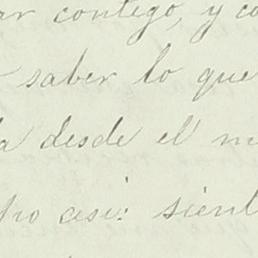 ar contigo, y co
saber lo que
a desde el m
ho asi: sient